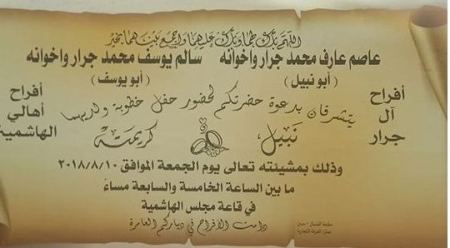 اللهم بارك لهما وبارك عليهما واجمع بينهما بخير
عاصم عارف محمد جرار واخوانه سالم يوسف محمد جرار واخوانه
(أبو نبيل) (أبو يوسف)
أفراح آل جرار
أفراح أهالي الهاشمية
يتشرفان بدعوة حضرتكم لحضور حفل خطوبة ولديهما
نبيل، كريمته
وذلك بمشيئته تعالى يوم الجمعة الموافق ٢٠١٨/٨/١٠
ما بين الساعة الخامسة والسابعة مساءً
في قاعة مجلس الهاشمية
دامت الافراح في دياركم العامرة